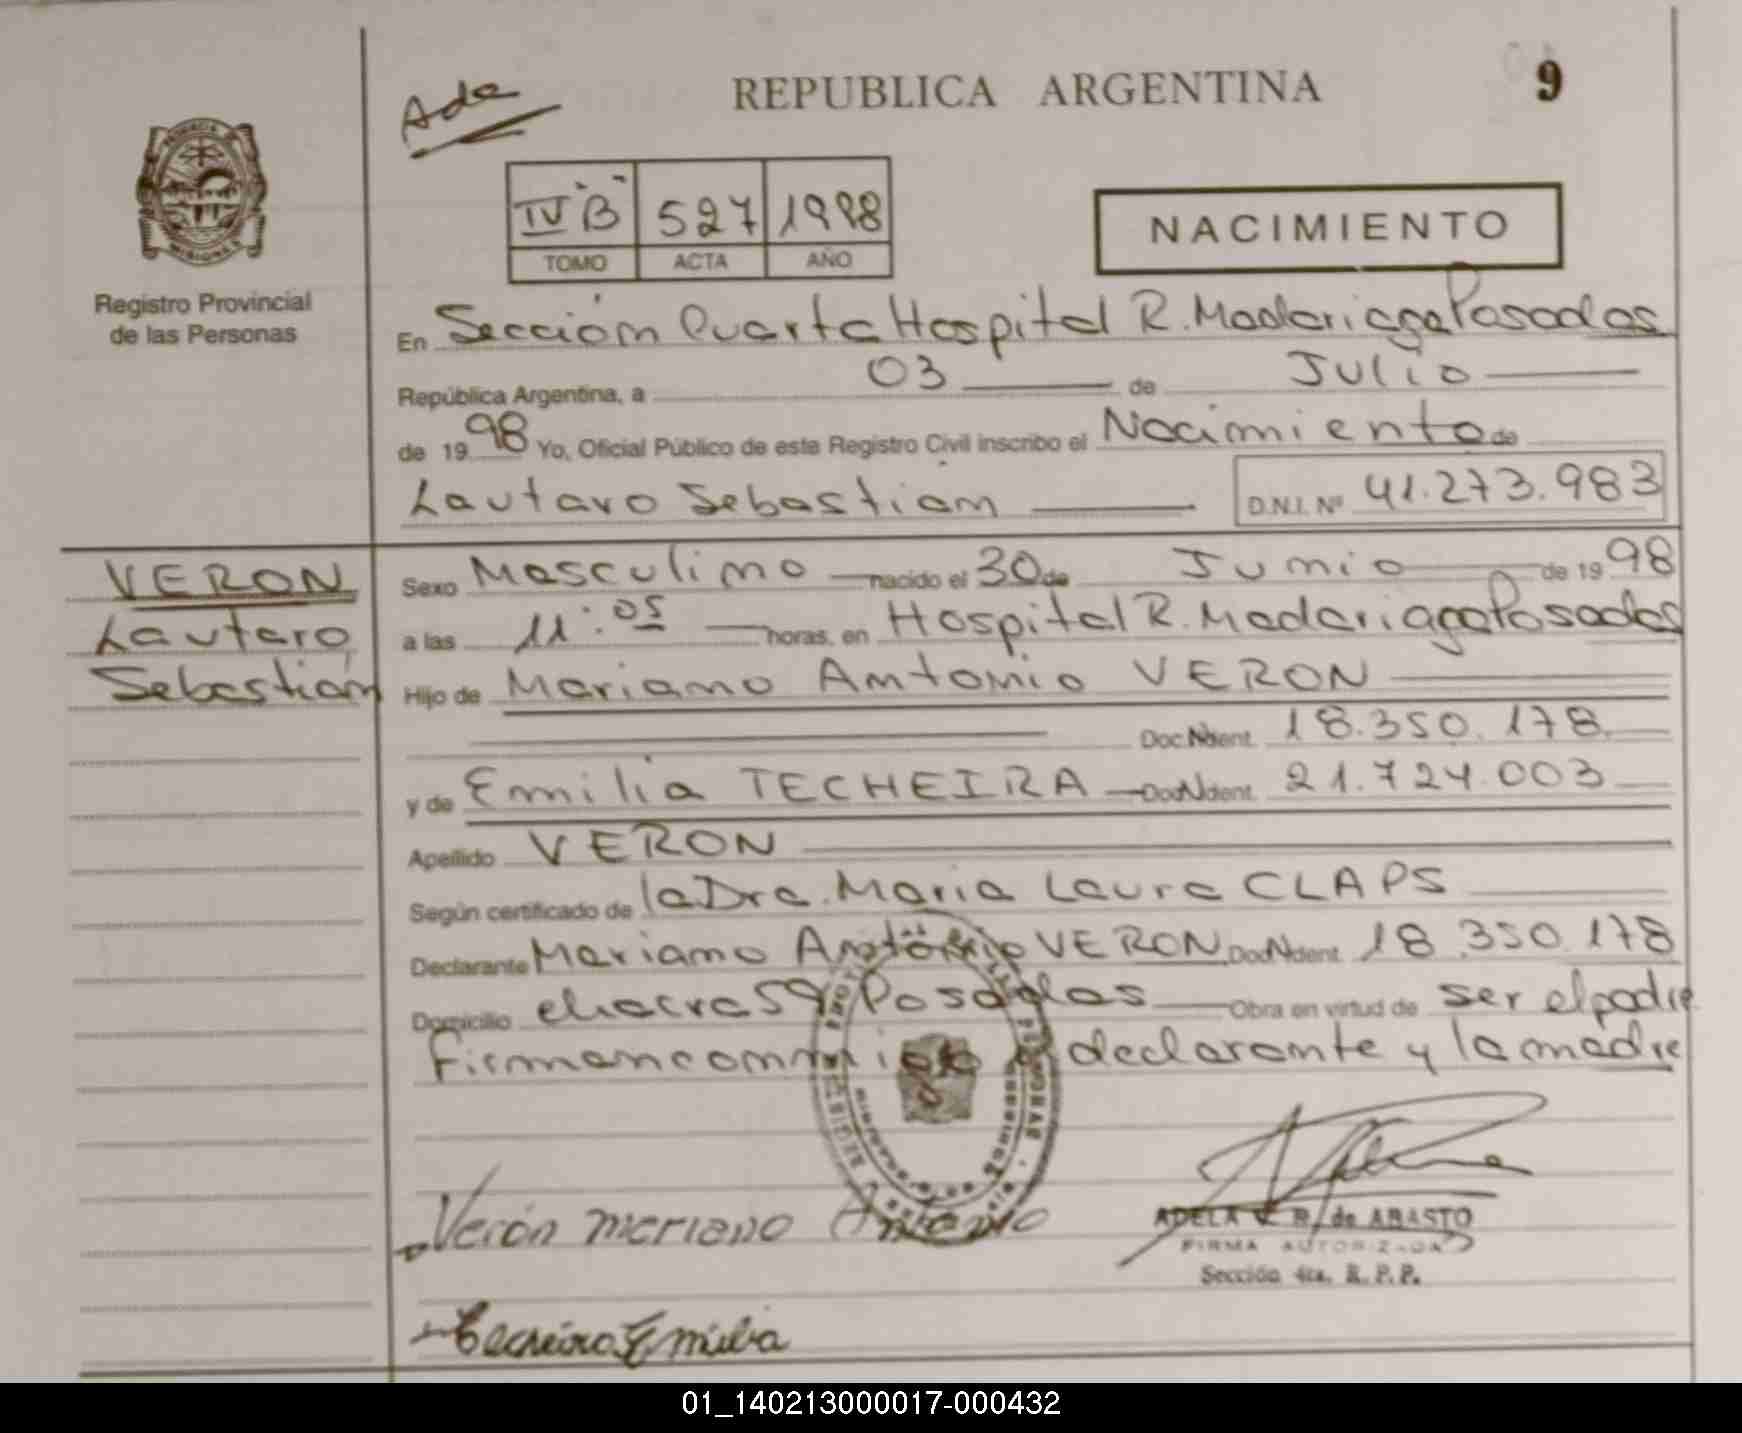 Ada
REPUBLICA ARGENTINA
9
IV "B" 527 1998
TOMO ACTA AÑO
NACIMIENTO
PROVINCIA DE MISIONES
Registro Provincial
de las Personas
En Sección Cuarta Hospital R. Madariaga Posadas
República Argentina, a 03 de Julio
de 1998 Yo, Oficial Público de este Registro Civil inscribo el Nacimiento de
Lautaro Sebastián D.N.I. Nº 41.273.983
VERON
Lautaro
Sebastián
Sexo Masculino nacido el 30 de Junio de 1998
a las 11:05 horas, en Hospital R. Madariaga Posadas
Hijo de Mariano Antonio VERON
Doc. Ident. 18.350.178
y de Emilia TECHEIRA Doc. Ident. 21.724.003
Apellido VERON
Según certificado de la Dra. Maria Laura CLAPS
Declarante Mariano Antonio VERON Doc. Ident. 18.350.178
Domicilio chacra 59 Posadas Obra en virtud de ser el padre
Firman conmigo el declarante y la madre
Verón Mariano Antonio
ADELA V. R. de ABASTO
FIRMA AUTORIZADA
Sección 4ta. R. P. P.
Techeira Emilia
01_140213000017-000432